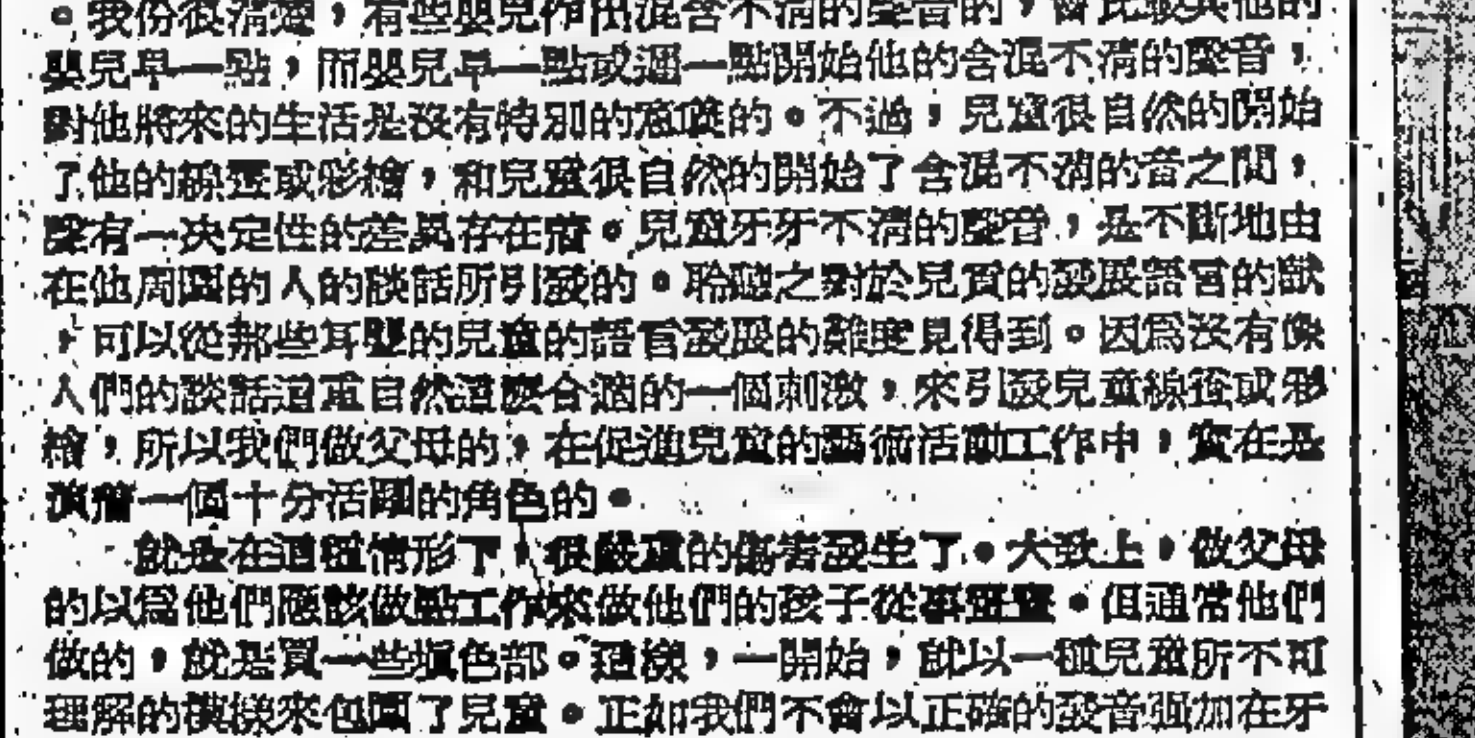 。我份很清楚，有些嬰兒作出混含不清的聲音的，會比較其他的
嬰兒早一點，而嬰兒早一點或遲一點開始他的含混不清的聲音，
對他將來的生活是沒有特別的意義的。不過，兒童很自然的開始
了他的線畫或彩繪，和兒童很自然的開始了含混不清的音之間，
聲有一决定性的差異存在着。兒童牙牙不清的聲音，是不斷地由
在他周圍的人的談話所引發的。聆聽之對於兒童的發展語言的獻
，可以從那些耳聾的兒童的語言發展的難度見得到。因爲沒有像
人們的談話這重自然這麽合適的一個刺激，來引發兒童線畫或彩
繪，所以我們做父母的，在促進兒童的藝術活動工作中，實在是
演着一個十分活躍的角色的。
就是在這種情形下，很嚴重的傷害發生了。大致上，做父母
的以爲他們應該做點工作來做他們的孩子從事繪畫。但通常他們
做的，就是買一些填色部。這樣，一開始，就以一種兒童所不可
理解的模樣來包圍了兒童。正如我們不會以正確的發音強加在牙